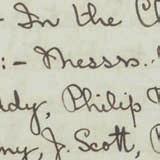 - In the C
:- Messrs.
ddy, Philip
ny, J. Scott,